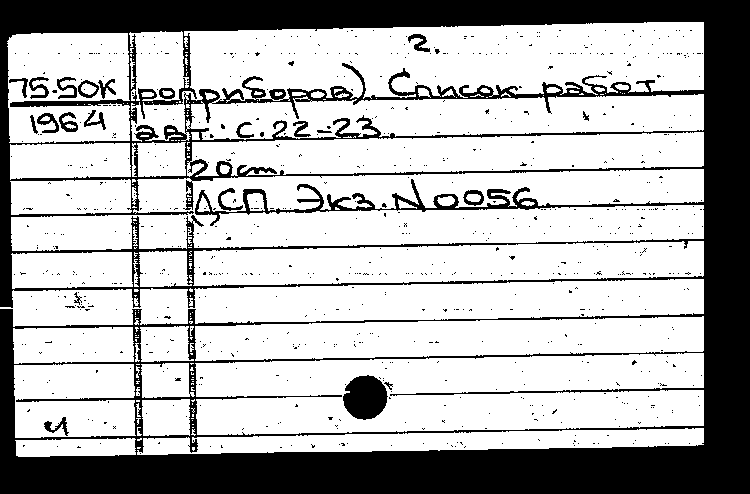 2.
75-50К роприборов). Список работ
1964 авт.: с.22-23.
20см.
ДСП. Экз. N 0056.